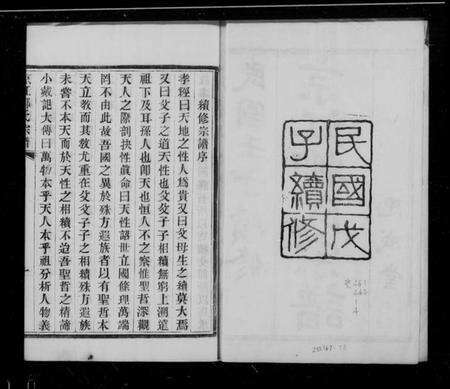 民國戊
子續修
續修宗譜序
孝經曰天地之性人為貴又曰父母生之續莫大焉
又曰父子之道天性也父父子子相續無窮上溯遠
祖下及耳孫人也卽天也恆人不之察惟聖哲深觀
天人之際剖抉性眞命曰天性語世立國條理萬端
罔不由此故吾國之異於殊方遠族者以有聖哲本
天立教而其教尤重在父父子子之相續殊方遠族
未嘗不本天而於天性之相續不迨吾聖哲之精諦
小戴記大傳曰萬物本乎天人本乎祖分析人物義
氏宗譜